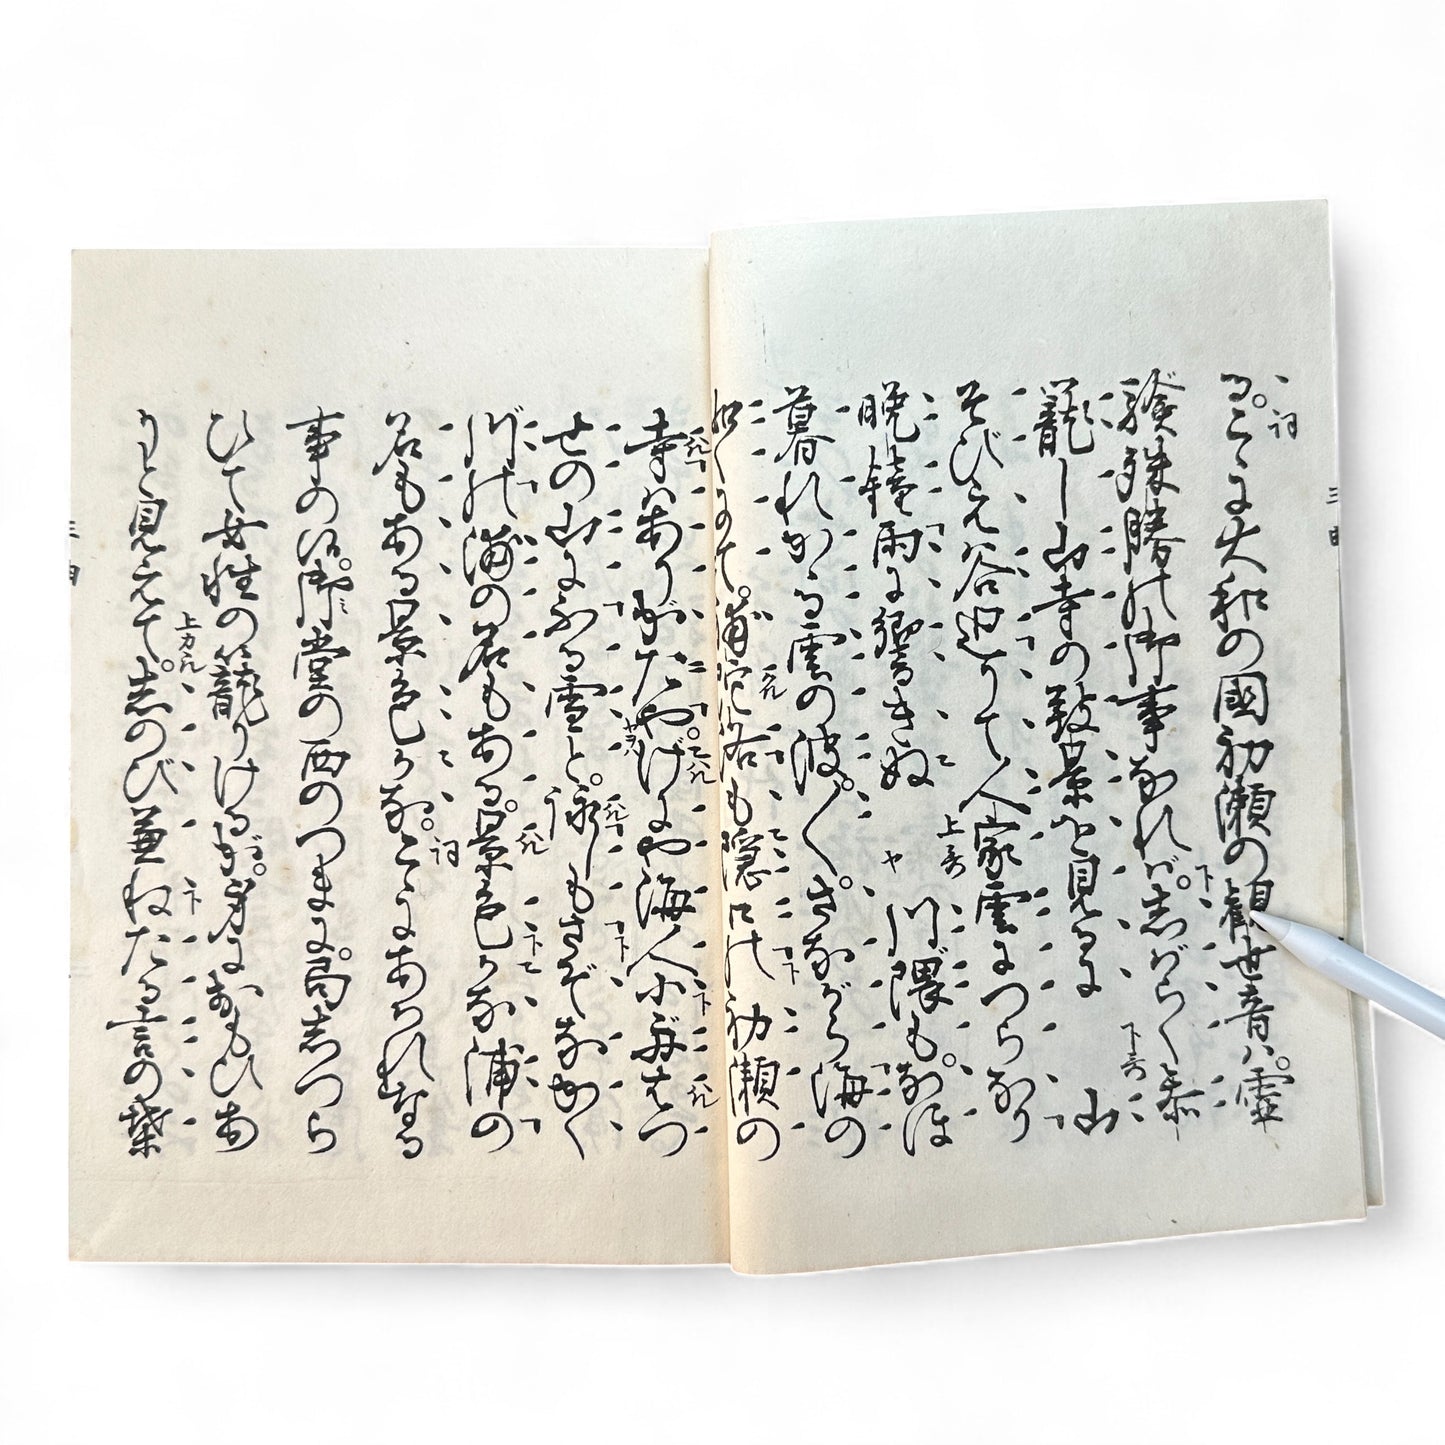 る。こゝに大和の國初瀬の觀世音ハ。霊
驗殊勝の御事なれバ。志バらく参
籠し山寺の致景を見るに 山
そびえ谷廻りて人家雲につらなり
晩鐘雨に響きぬ 川隈も。なほ
暮れかゝる雲の波。〱。さながら海の
如くにて。補陀落も隠江の初瀬の
寺ハありがたや。げにや海人小舟はつ
せの山にふる雪と。詠しもさぞなかく
川の浦の名もある。景色かな浦の
名もある景色かな。こゝにあはれなる
事の候。御堂の西のつまに。局志つら
ひて女性の籠りけるが。身におもひあ
りと見えて。志のび兼ねたる言の葉